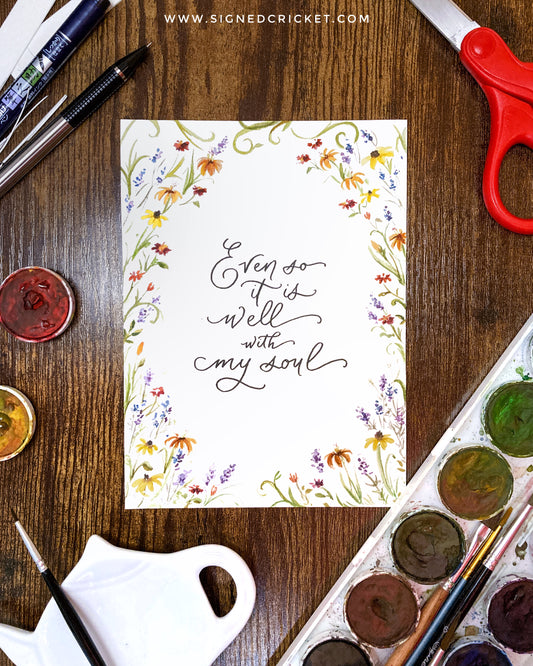 WWW.SIGNEDCRICKET.COM
Even so
it is
well
with
my soul